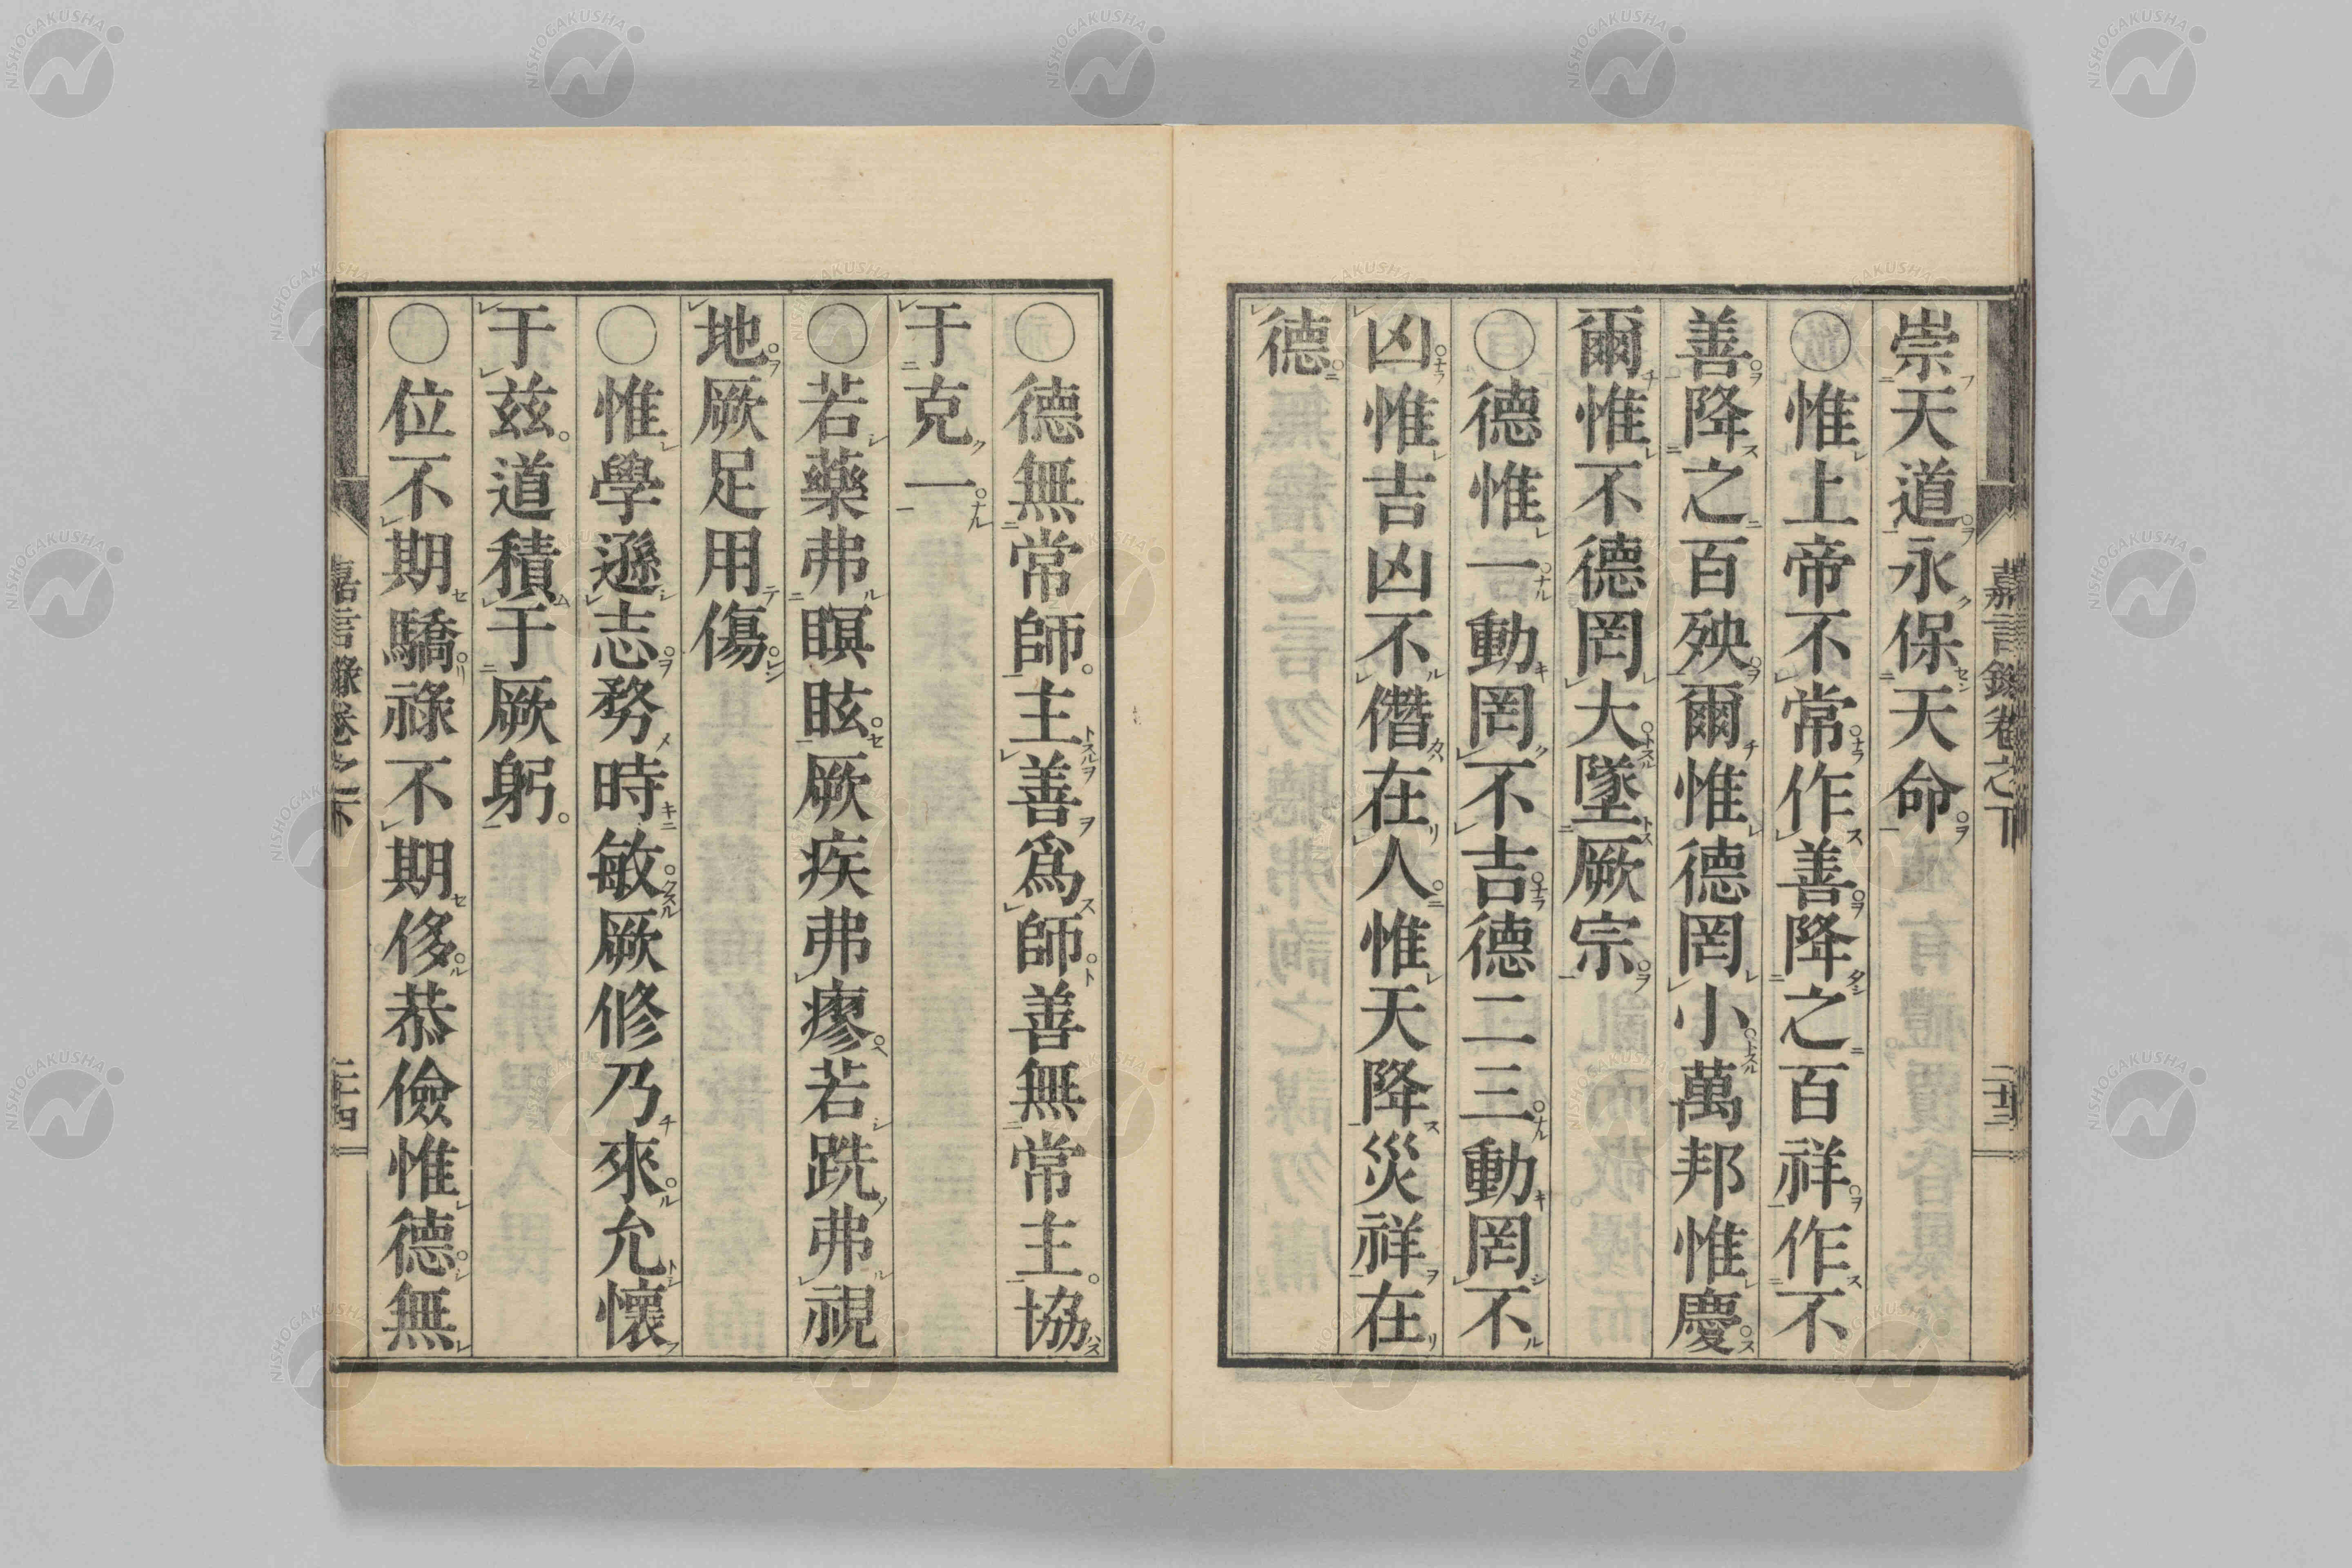 嘉言錄卷之下
二十三
崇天道永保天命
○惟上帝不常作善降之百祥作不
善降之百殃爾惟德罔小萬邦惟慶
爾惟不德罔大墜厥宗
○德惟一動罔不吉德二三動罔不
凶惟吉凶不僭在人惟天降災祥在
德
○德無常師主善爲師善無常主協
于克一
○若藥弗瞑眩厥疾弗瘳若跣弗視
地厥足用傷
○惟學遜志務時敏厥修乃來允懷
于玆道積于厥躬
○位不期驕祿不期侈恭儉惟德無
嘉言錄卷之下
二十四
NISHOGAKUSHA